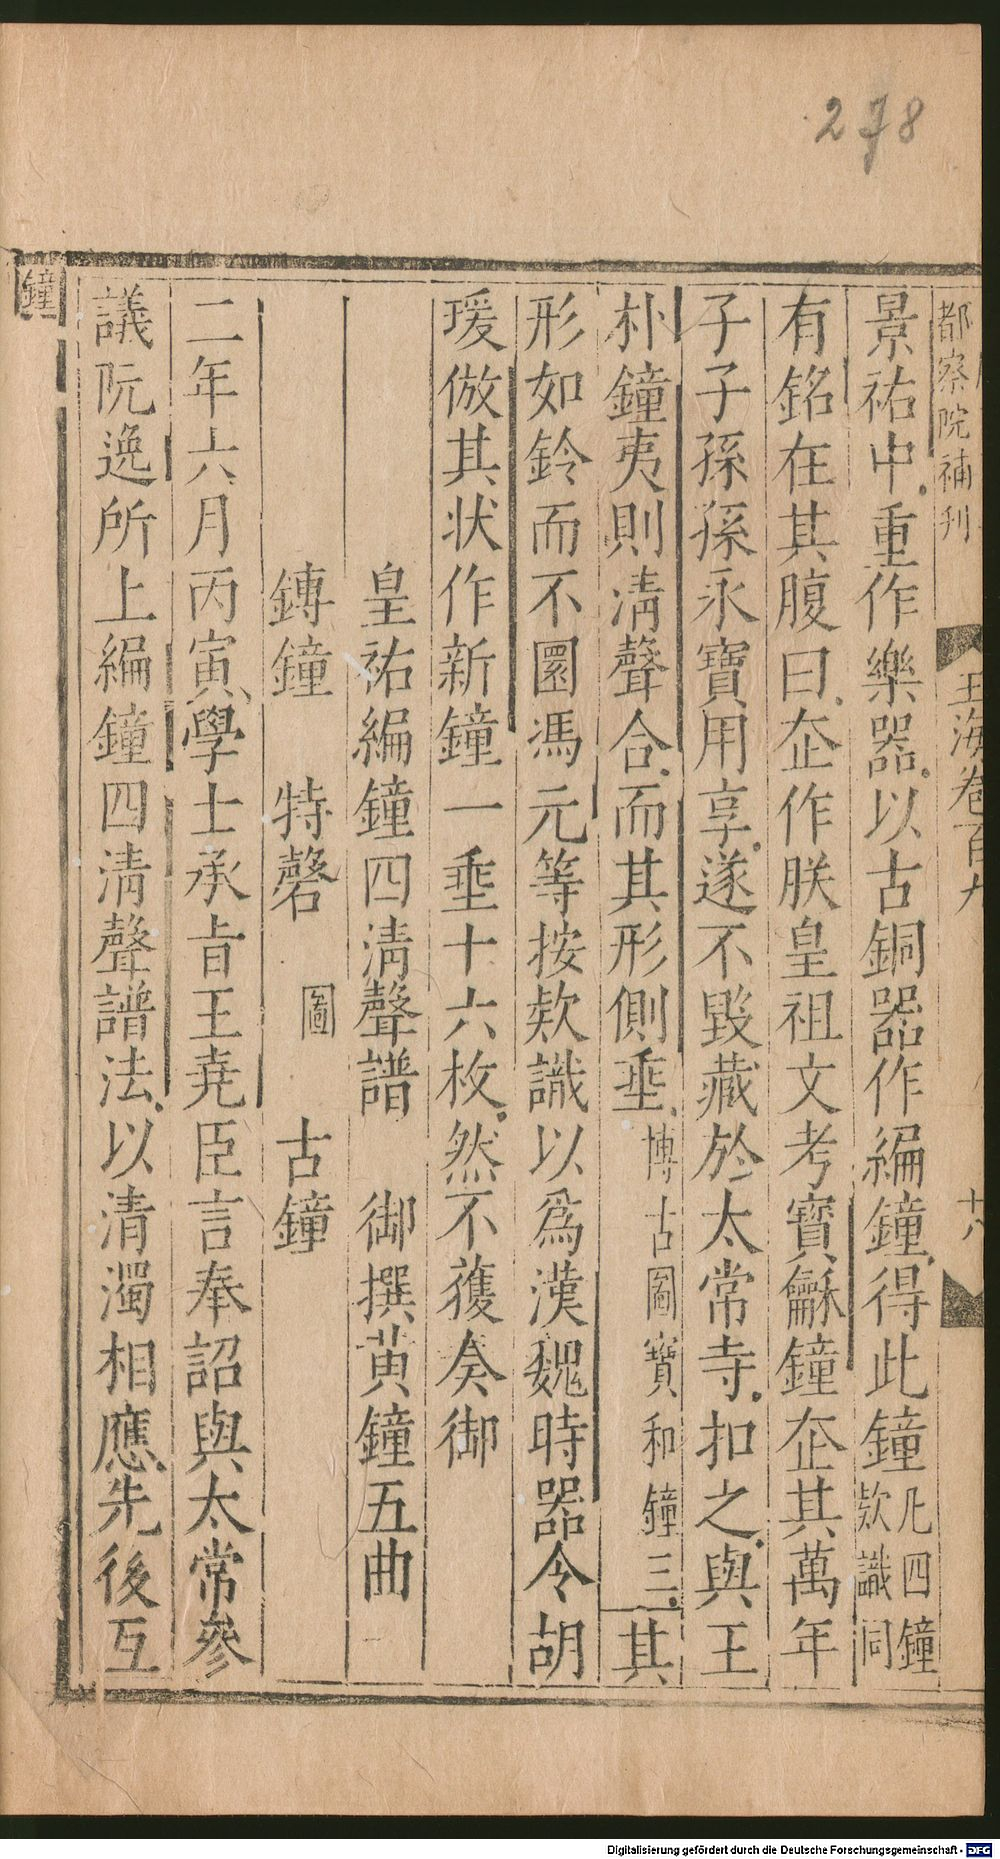 278
都察院補刋
玉海卷百九
十八
景祐中重作樂器以古銅器作編鐘得此鐘凡四鐘欵識同
有銘在其腹曰㐲作朕皇祖文考寶龢鐘㐲其萬年
子子孫孫永寶用享遂不毀藏於太常寺扣之與王
朴鐘夷則清聲合而其形側垂博古圖寶和鐘三其
形如鈴而不圜馮元等按欵識以爲漢魏時器令胡
瑗倣其状作新鐘一垂十六枚然不獲奏御
皇祐編鐘四清聲譜 御撰黄鐘五曲
鎛鐘 特磬圖 古鐘
二年六月丙寅學士承旨王堯臣言奉詔與太常參
議阮逸所上編鐘四清聲譜法以清濁相應先後互
鐘
Digitalisierung gefördert durch die Deutsche Forschungsgemeinschaft - DFG